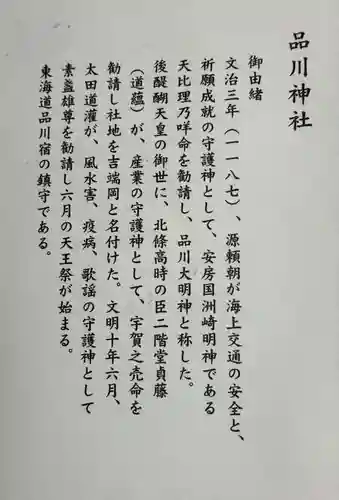 品川神社
御由緒
文治三年（一一八七）、源頼朝が海上交通の安全と、
祈願成就の守護神として、安房国洲崎明神である
天比理乃咩命を勧請し、品川大明神と称した。
後醍醐天皇の御世に、北條高時の臣二階堂貞藤
（道蘊）が、産業の守護神として、宇賀之売命を
勧請し社地を吉端岡と名付けた。文明十年六月、
太田道灌が、風水害、疫病、歌謡の守護神として
素盞雄尊を勧請し六月の天王祭が始まる。
東海道品川宿の鎮守である。